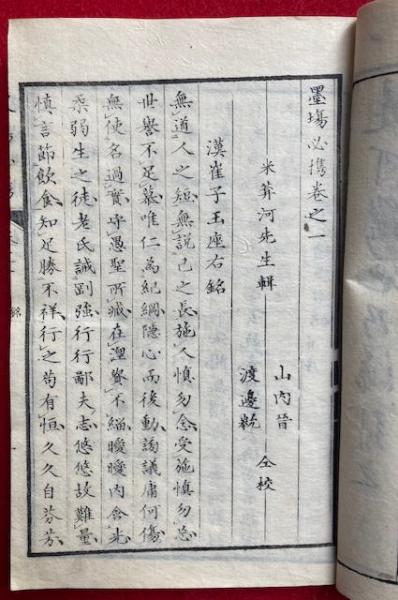 墨場必携卷之一
米葊河先生輯
山内晉
渡邊㲋
仝校
漢崔子玉座右銘
無道人之短無說己之長施人愼勿念受施愼勿忘
世譽不足慕唯仁爲紀綱隱心而後動謗議庸何傷
無使名過實守愚聖所臧在涅貴不緇曖曖內含光
柔弱生之徒老氏誡剛強行行鄙夫志悠悠故難量
愼言節飮食知足勝不祥行之苟有恒久久自芬芬